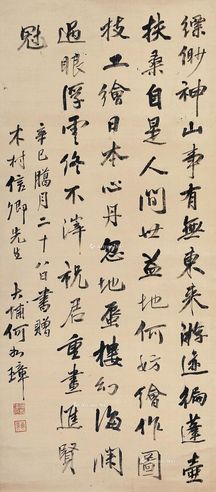 縹緲神山事有無東來游迹徧蓬壺
扶桑自是人間世益地何妨繪作圖
技工繪日本心丹忽地蜃樓幻海闊
過眼浮雲修不滓祝君重畫進賢
冠
辛巳臘月二十八日書贈
木村信卿先生
大埔何如璋